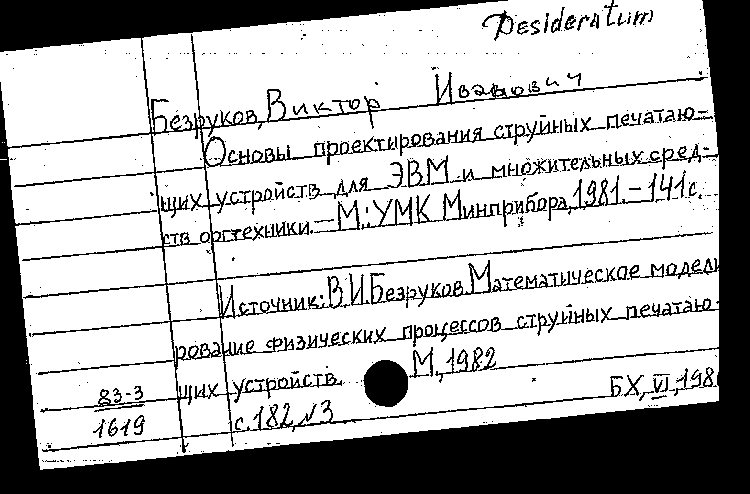 Desideratum
Безруков, Виктор Иванович
Основы проектирования струйных печатаю-
щих устройств для ЭВМ и множительных сред-
ств оргтехники. — М.: УМК Минприбора, 1981. - 141 с.
Источник: В.И. Безруков. Математическое модели
рование физических процессов струйных печатаю-
щих устройств. М., 1982
с. 182, №3
83-3
1619
БХ, VI, 198